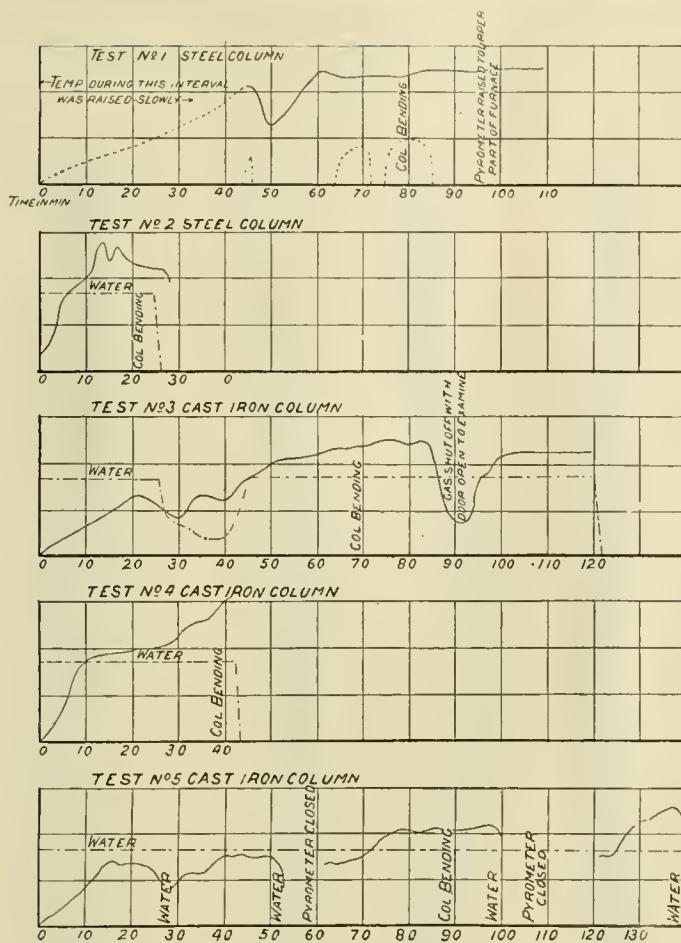 TEST Nº1 STEEL COLUMN
TEMP DURING THIS INTERVAL
WAS RAISED SLOWLY
COL BENDING
PYROMETER RAISED TO UPPER
PART OF FURNACE
10 20 30 40 50 60 70 80 90 100 110
TIME IN MIN
TEST Nº2 STEEL COLUMN
WATER
COL BENDING
0 10 20 30 40 0
TEST Nº3 CAST IRON COLUMN
WATER
COL BENDING
GAS SHUT OFF WITH
DOOR OPEN TO EXAMINE
0 10 20 30 40 50 60 70 80 90 100 110 120
TEST Nº4 CAST IRON COLUMN
WATER
COL BENDING
0 10 20 30 40
TEST Nº5 CAST IRON COLUMN
WATER
WATER
WATER
PYROMETER CLOSED
COL BENDING
WATER
PYROMETER
CLOSED
WATER
0 10 20 30 40 50 60 70 80 90 100 110 120 130